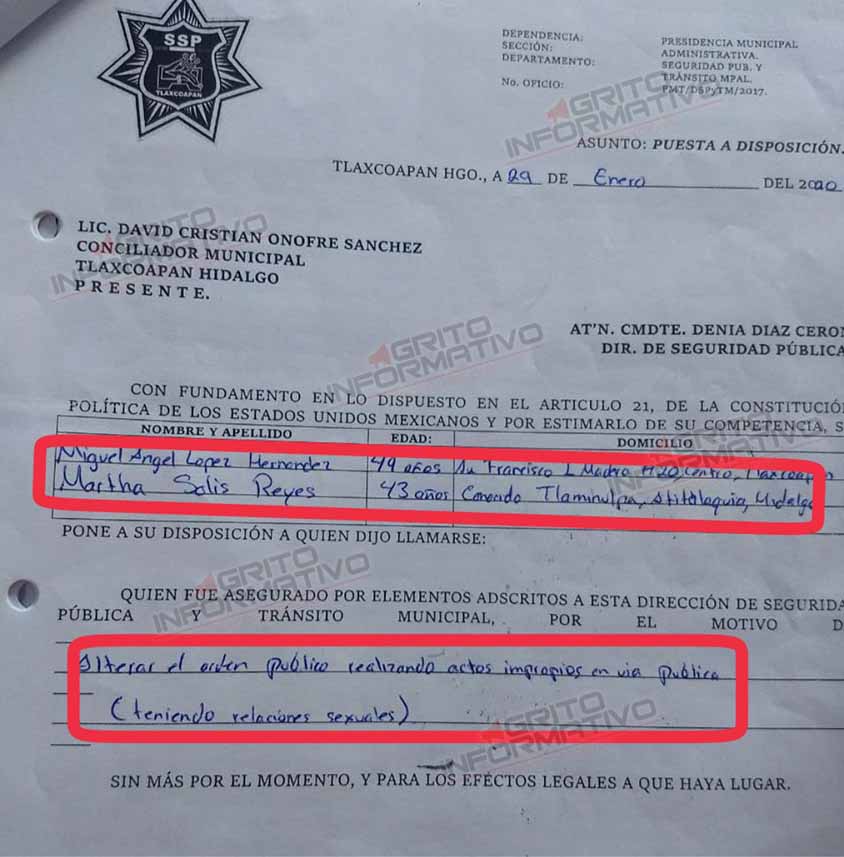 SSP
TLAXCOAPAN
DEPENDENCIA: PRESIDENCIA MUNICIPAL
SECCIÓN: ADMINISTRATIVA.
DEPARTAMENTO: SEGURIDAD PUB. Y
TRÁNSITO MPAL.
No. OFICIO: PMT/DSPyTM/2017.
GRITO
INFORMATIVO
ASUNTO: PUESTA A DISPOSICIÓN.
TLAXCOAPAN HGO., A 29 DE Enero DEL 2020
GRITO
INFORMATIVO
LIC. DAVID CRISTIAN ONOFRE SANCHEZ
CONCILIADOR MUNICIPAL
TLAXCOAPAN HIDALGO
P R E S E N T E.
AT'N. CMDTE. DENIA DIAZ CERON
DIR. DE SEGURIDAD PÚBLICA
GRITO
INFORMATIVO
CON FUNDAMENTO EN LO DISPUESTO EN EL ARTICULO 21, DE LA CONSTITUCIÓN
POLÍTICA DE LOS ESTADOS UNIDOS MEXICANOS Y POR ESTIMARLO DE SU COMPETENCIA, S
GRITO
INFORMATIVO
NOMBRE Y APELLIDO EDAD: DOMICILIO
Miguel Angel Lopez Hernandez 49 años Av Francisco I Madero Centro, Tlaxcoapan
Martha Solis Reyes 43 años Conocido Tlaminulpa, Atitalaquia, Hidalgo
PONE A SU DISPOSICIÓN A QUIEN DIJO LLAMARSE:
GRITO
INFORMATIVO
QUIEN FUE ASEGURADO POR ELEMENTOS ADSCRITOS A ESTA DIRECCIÓN DE SEGURIDA
PÚBLICA Y TRÁNSITO MUNICIPAL, POR EL MOTIVO D
Alterar el orden publico realizando actos impropios en via publica
(teniendo relaciones sexuales)
GRITO
INFORMATIVO
SIN MÁS POR EL MOMENTO, Y PARA LOS EFÉCTOS LEGALES A QUE HAYA LUGAR.